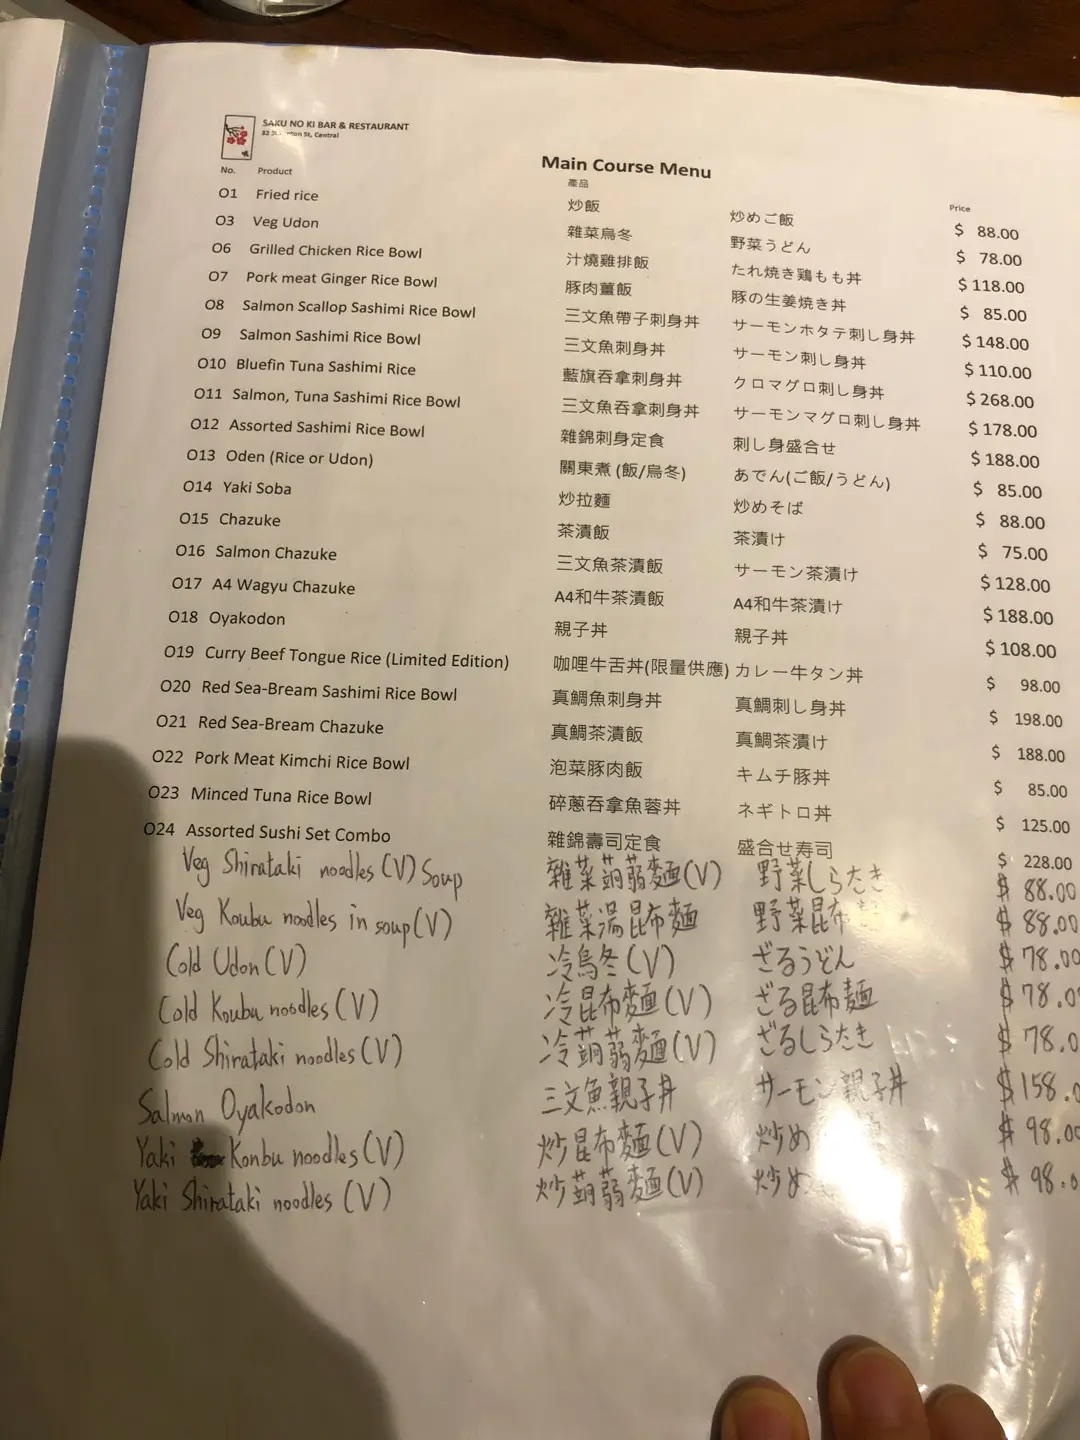 SAKU NO KI BAR & RESTAURANT
Central
Main Course Menu
No. Product 產品 Price
O1 Fried rice 炒飯 炒めご飯 $ 88.00
O3 Veg Udon 雜菜烏冬 野菜うどん $ 78.00
O6 Grilled Chicken Rice Bowl 汁燒雞排飯 たれ焼き鶏もも丼 $ 118.00
O7 Pork meat Ginger Rice Bowl 豚肉薑飯 豚の生姜焼き丼 $ 85.00
O8 Salmon Scallop Sashimi Rice Bowl 三文魚帶子刺身丼 サーモンホタテ刺し身丼 $ 148.00
O9 Salmon Sashimi Rice Bowl 三文魚刺身丼 サーモン刺し身丼 $ 110.00
O10 Bluefin Tuna Sashimi Rice 藍旗吞拿刺身丼 クロマグロ刺し身丼 $ 268.00
O11 Salmon, Tuna Sashimi Rice Bowl 三文魚吞拿刺身丼 サーモンマグロ刺し身丼 $ 178.00
O12 Assorted Sashimi Rice Bowl 雜錦刺身定食 刺し身盛合せ $ 188.00
O13 Oden (Rice or Udon) 關東煮 (飯/烏冬) あでん(ご飯/うどん) $ 85.00
O14 Yaki Soba 炒拉麵 炒めそば $ 88.00
O15 Chazuke 茶漬飯 茶漬け $ 75.00
O16 Salmon Chazuke 三文魚茶漬飯 サーモン茶漬け $ 128.00
O17 A4 Wagyu Chazuke A4和牛茶漬飯 A4和牛茶漬け $ 188.00
O18 Oyakodon 親子丼 親子丼 $ 108.00
O19 Curry Beef Tongue Rice (Limited Edition) 咖哩牛舌丼(限量供應) カレー牛タン丼 $ 98.00
O20 Red Sea-Bream Sashimi Rice Bowl 真鯛魚刺身丼 真鯛刺し身丼 $ 198.00
O21 Red Sea-Bream Chazuke 真鯛茶漬飯 真鯛茶漬け $ 188.00
O22 Pork Meat Kimchi Rice Bowl 泡菜豚肉飯 キムチ豚丼 $ 85.00
O23 Minced Tuna Rice Bowl 碎蔥吞拿魚蓉丼 ネギトロ丼 $ 125.00
O24 Assorted Sushi Set Combo 雜錦壽司定食 盛合せ寿司 $ 228.00
Veg Shirataki noodles (V) Soup 雜菜蒟蒻麵(V) 野菜しらたき $ 88.00
Veg Koubu noodles in soup (V) 雜菜湯昆布麵 野菜昆布 $ 88.00
Cold Udon (V) 冷烏冬(V) ざるうどん $ 78.00
Cold Koubu noodles (V) 冷昆布麵(V) ざる昆布麵 $ 78.0
Cold Shirataki noodles (V) 冷蒟蒻麵(V) ざるしらたき $ 78.0
Salmon Oyakodon 三文魚親子丼 サーモン親子丼 $ 158.0
Yaki Konbu noodles (V) 炒昆布麵(V) 炒め $ 98.0
Yaki Shirataki noodles (V) 炒蒟蒻麵(V) 炒め $ 98.0